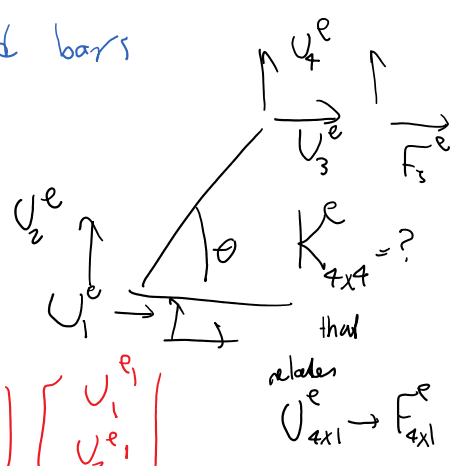 d bars
U_4^e
U_3^e
F_3^e
U_2^e
θ
K^e_{4x4} = ?
U_1^e
that
relates
U^e_{4x1} → F^e_{4x1}
U_1^{e_1}
U_2^{e_1}